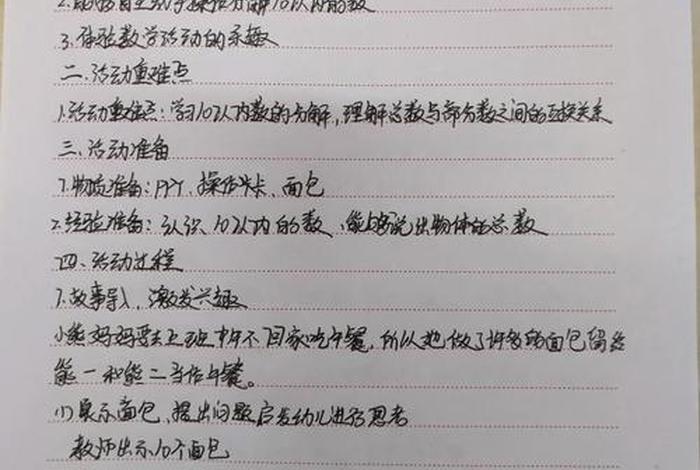 2.能够自主动手操作分解10以内的数
3.体验数学活动的乐趣
二.活动重难点
1.活动重难点:学习10以内数的分解,理解总数与部分数之间的互换关系
三.活动准备
1.物质准备:PPT、操作卡、面包
2.经验准备:认识10以内的数、能够说出物体的总数
四.活动过程
1.故事导入,激发兴趣
小熊妈妈要去上班中午不回家吃午餐,所以她做了许多的面包留给
熊一和熊二当作午餐。
(1)展示面包,提出问题启发幼儿进行思考
教师出示10个面包